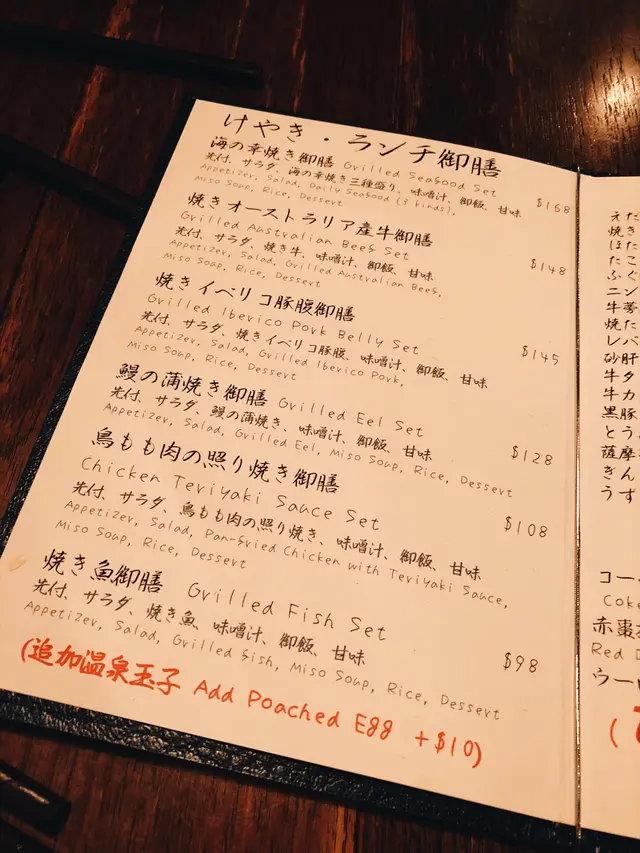 けやき・ランチ御膳
海の幸焼き御膳 Grilled Seafood Set
先付、サラダ、海の幸焼き三種盛り、味噌汁、御飯、甘味
Appetizer, Salad, Daily Seafood (3 kinds),
Miso Soup, Rice, Dessert
$168
焼きオーストラリア産牛御膳
Grilled Australian Beef Set
先付、サラダ、焼き牛、味噌汁、御飯、甘味
Appetizer, Salad, Grilled Australian Beef,
Miso Soup, Rice, Dessert
$148
焼きイベリコ豚腹御膳
Grilled Iberico Pork Belly Set
先付、サラダ、焼きイベリコ豚腹、味噌汁、御飯、甘味
Appetizer, Salad, Grilled Iberico Pork,
Miso Soup, Rice, Dessert
$145
鰻の蒲焼き御膳 Grilled Eel Set
先付、サラダ、鰻の蒲焼き、味噌汁、御飯、甘味
Appetizer, Salad, Grilled Eel, Miso Soup, Rice, Dessert
$128
鳥もも肉の照り焼き御膳
Chicken Teriyaki Sauce Set
先付、サラダ、鳥もも肉の照り焼き、味噌汁、御飯、甘味
Appetizer, Salad, Pan-fried Chicken with Teriyaki Sauce,
Miso Soup, Rice, Dessert
$108
焼き魚御膳 Grilled Fish Set
先付、サラダ、焼き魚、味噌汁、御飯、甘味
Appetizer, Salad, Grilled fish, Miso Soup, Rice, Dessert
$98
(追加温泉玉子 Add Poached Egg +$10)
えだ
焼き
ほた
たこ
ふぐ
ニン
牛蒡
焼た
レバ
砂肝
牛タ
牛カ
黒豚
とう
薩摩
ぎん
うず
コー
Coke
赤棗
Red D
ウーロ
(